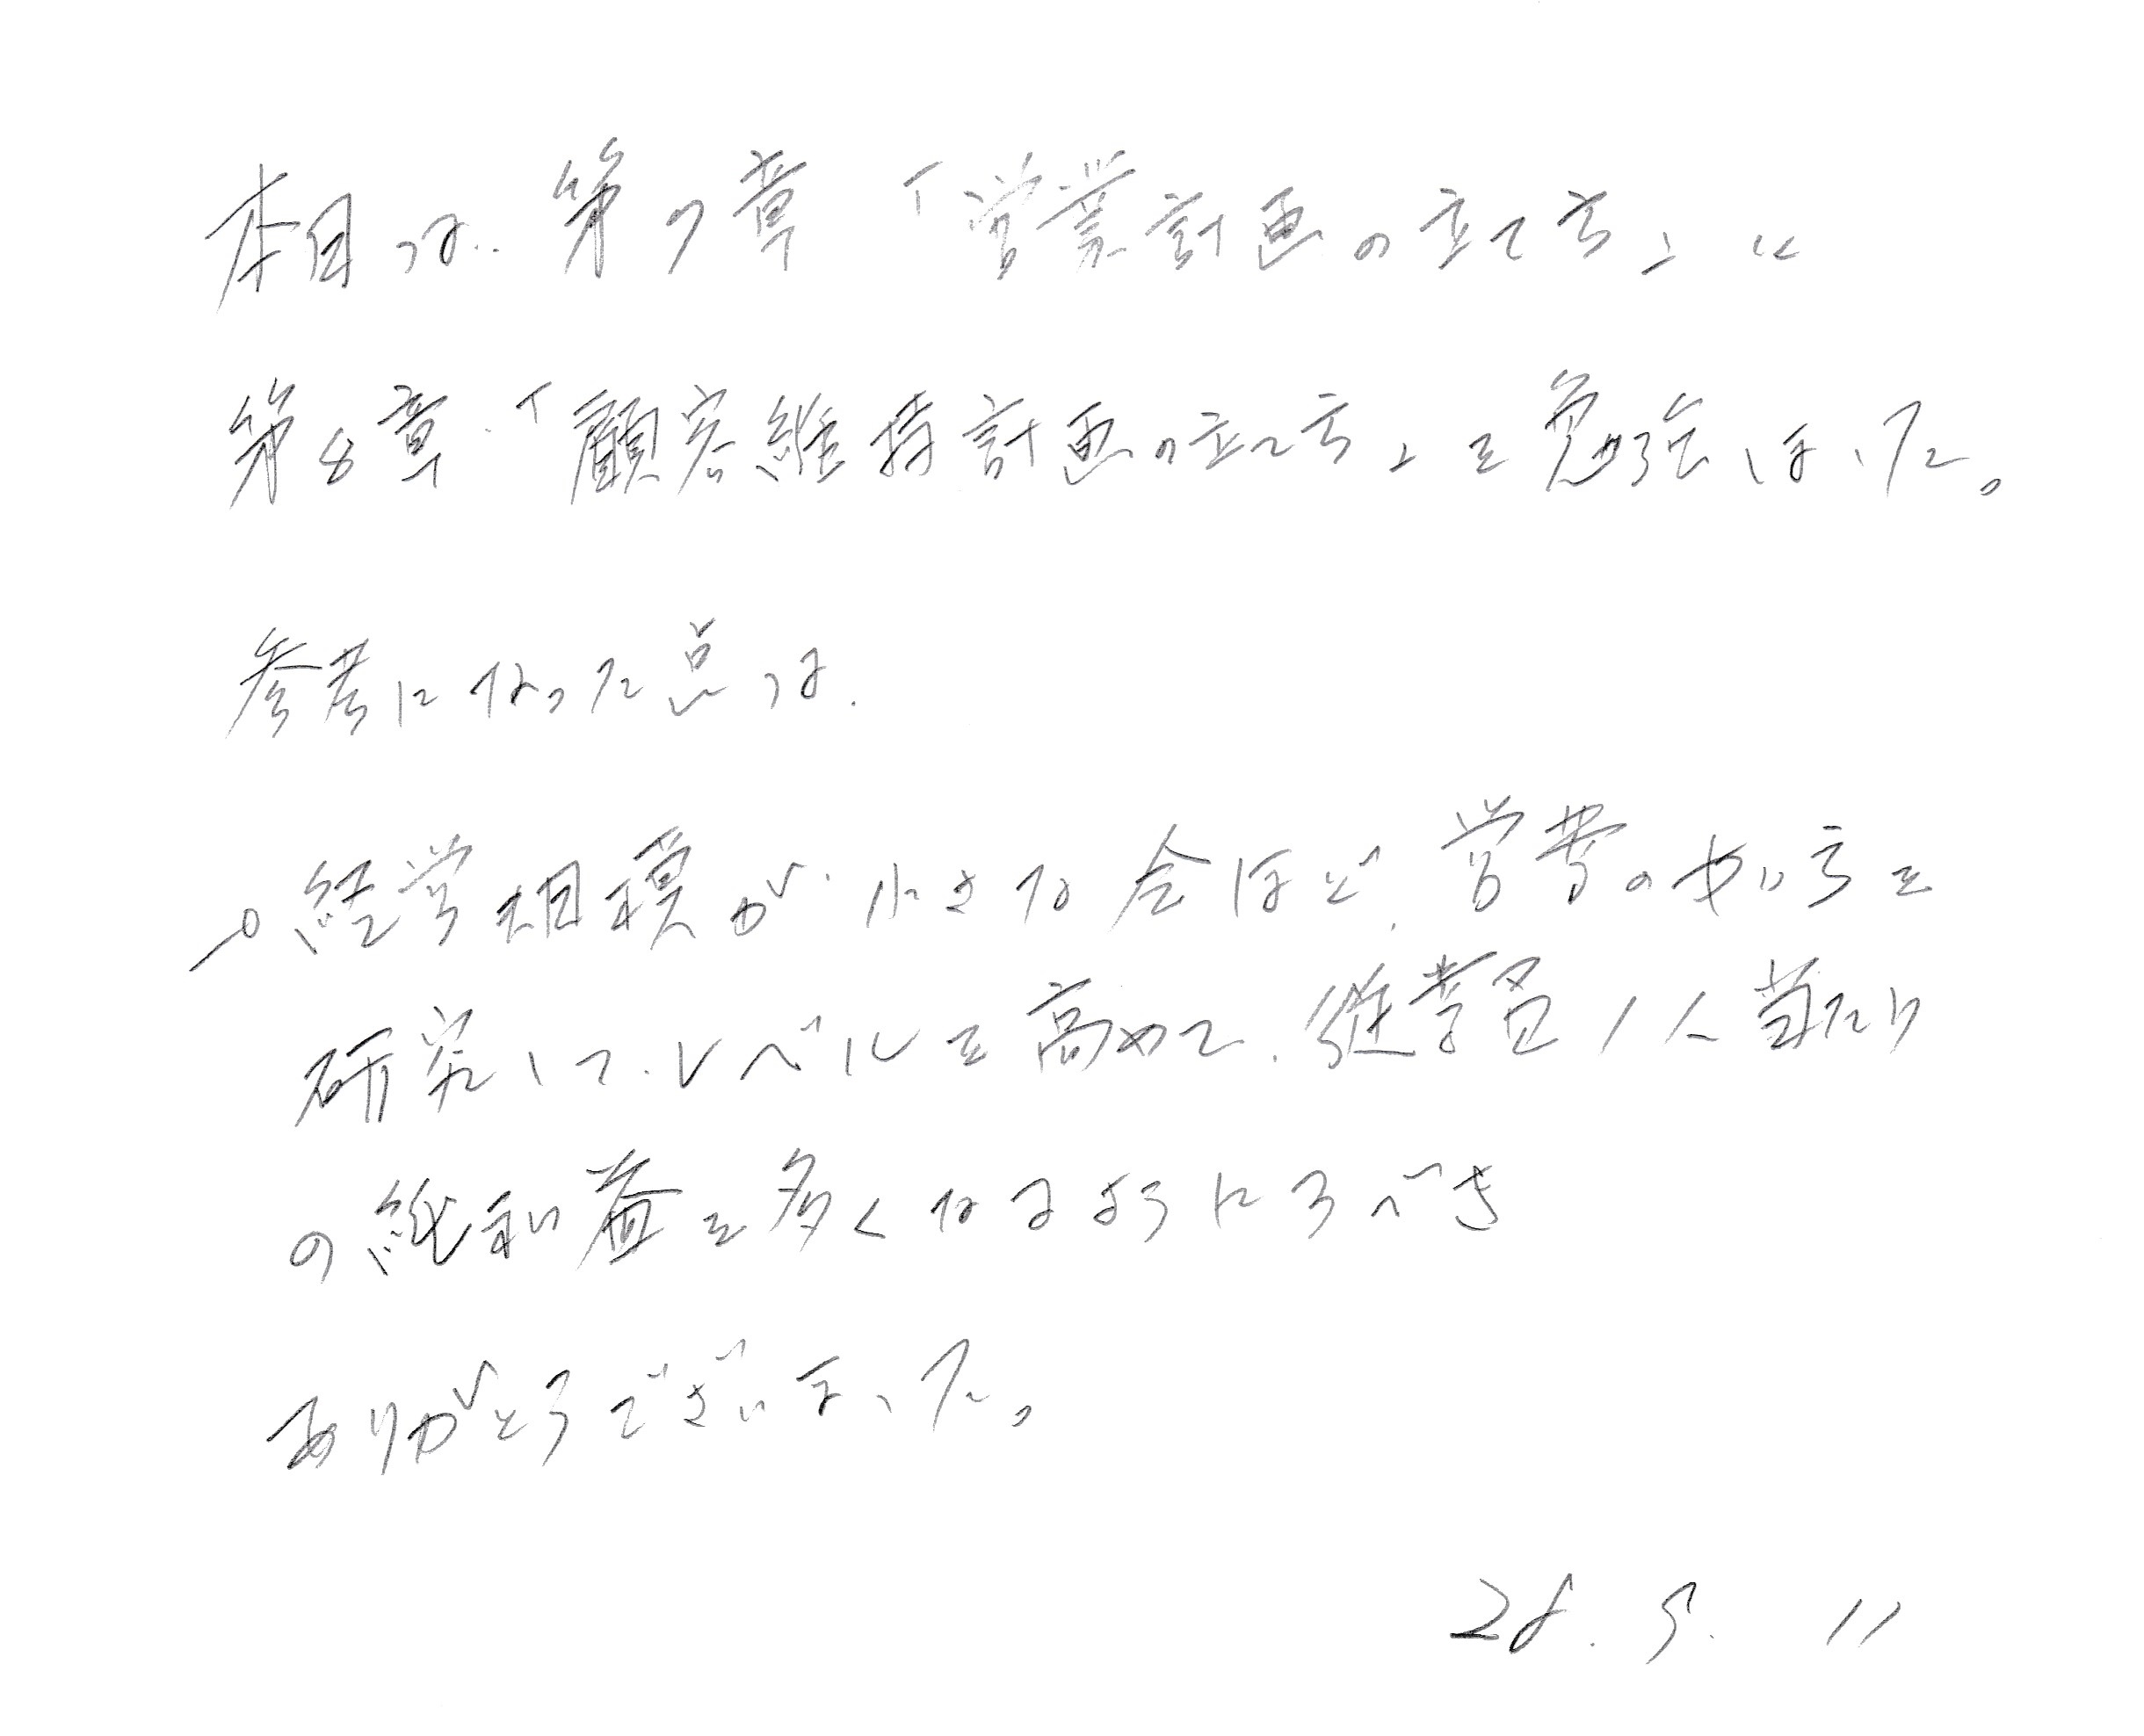 本日は、第7章「営業計画の立て方」と
第8章「顧客維持計画の立て方」を勉強しました。
参考になった点は、
○経営規模が小さな会ほど、営業のやり方を
研究して、レベルを高めて、従業員1人当たり
の純利益を多くなるようにすべき
ありがとうございました。
28. 9. 11